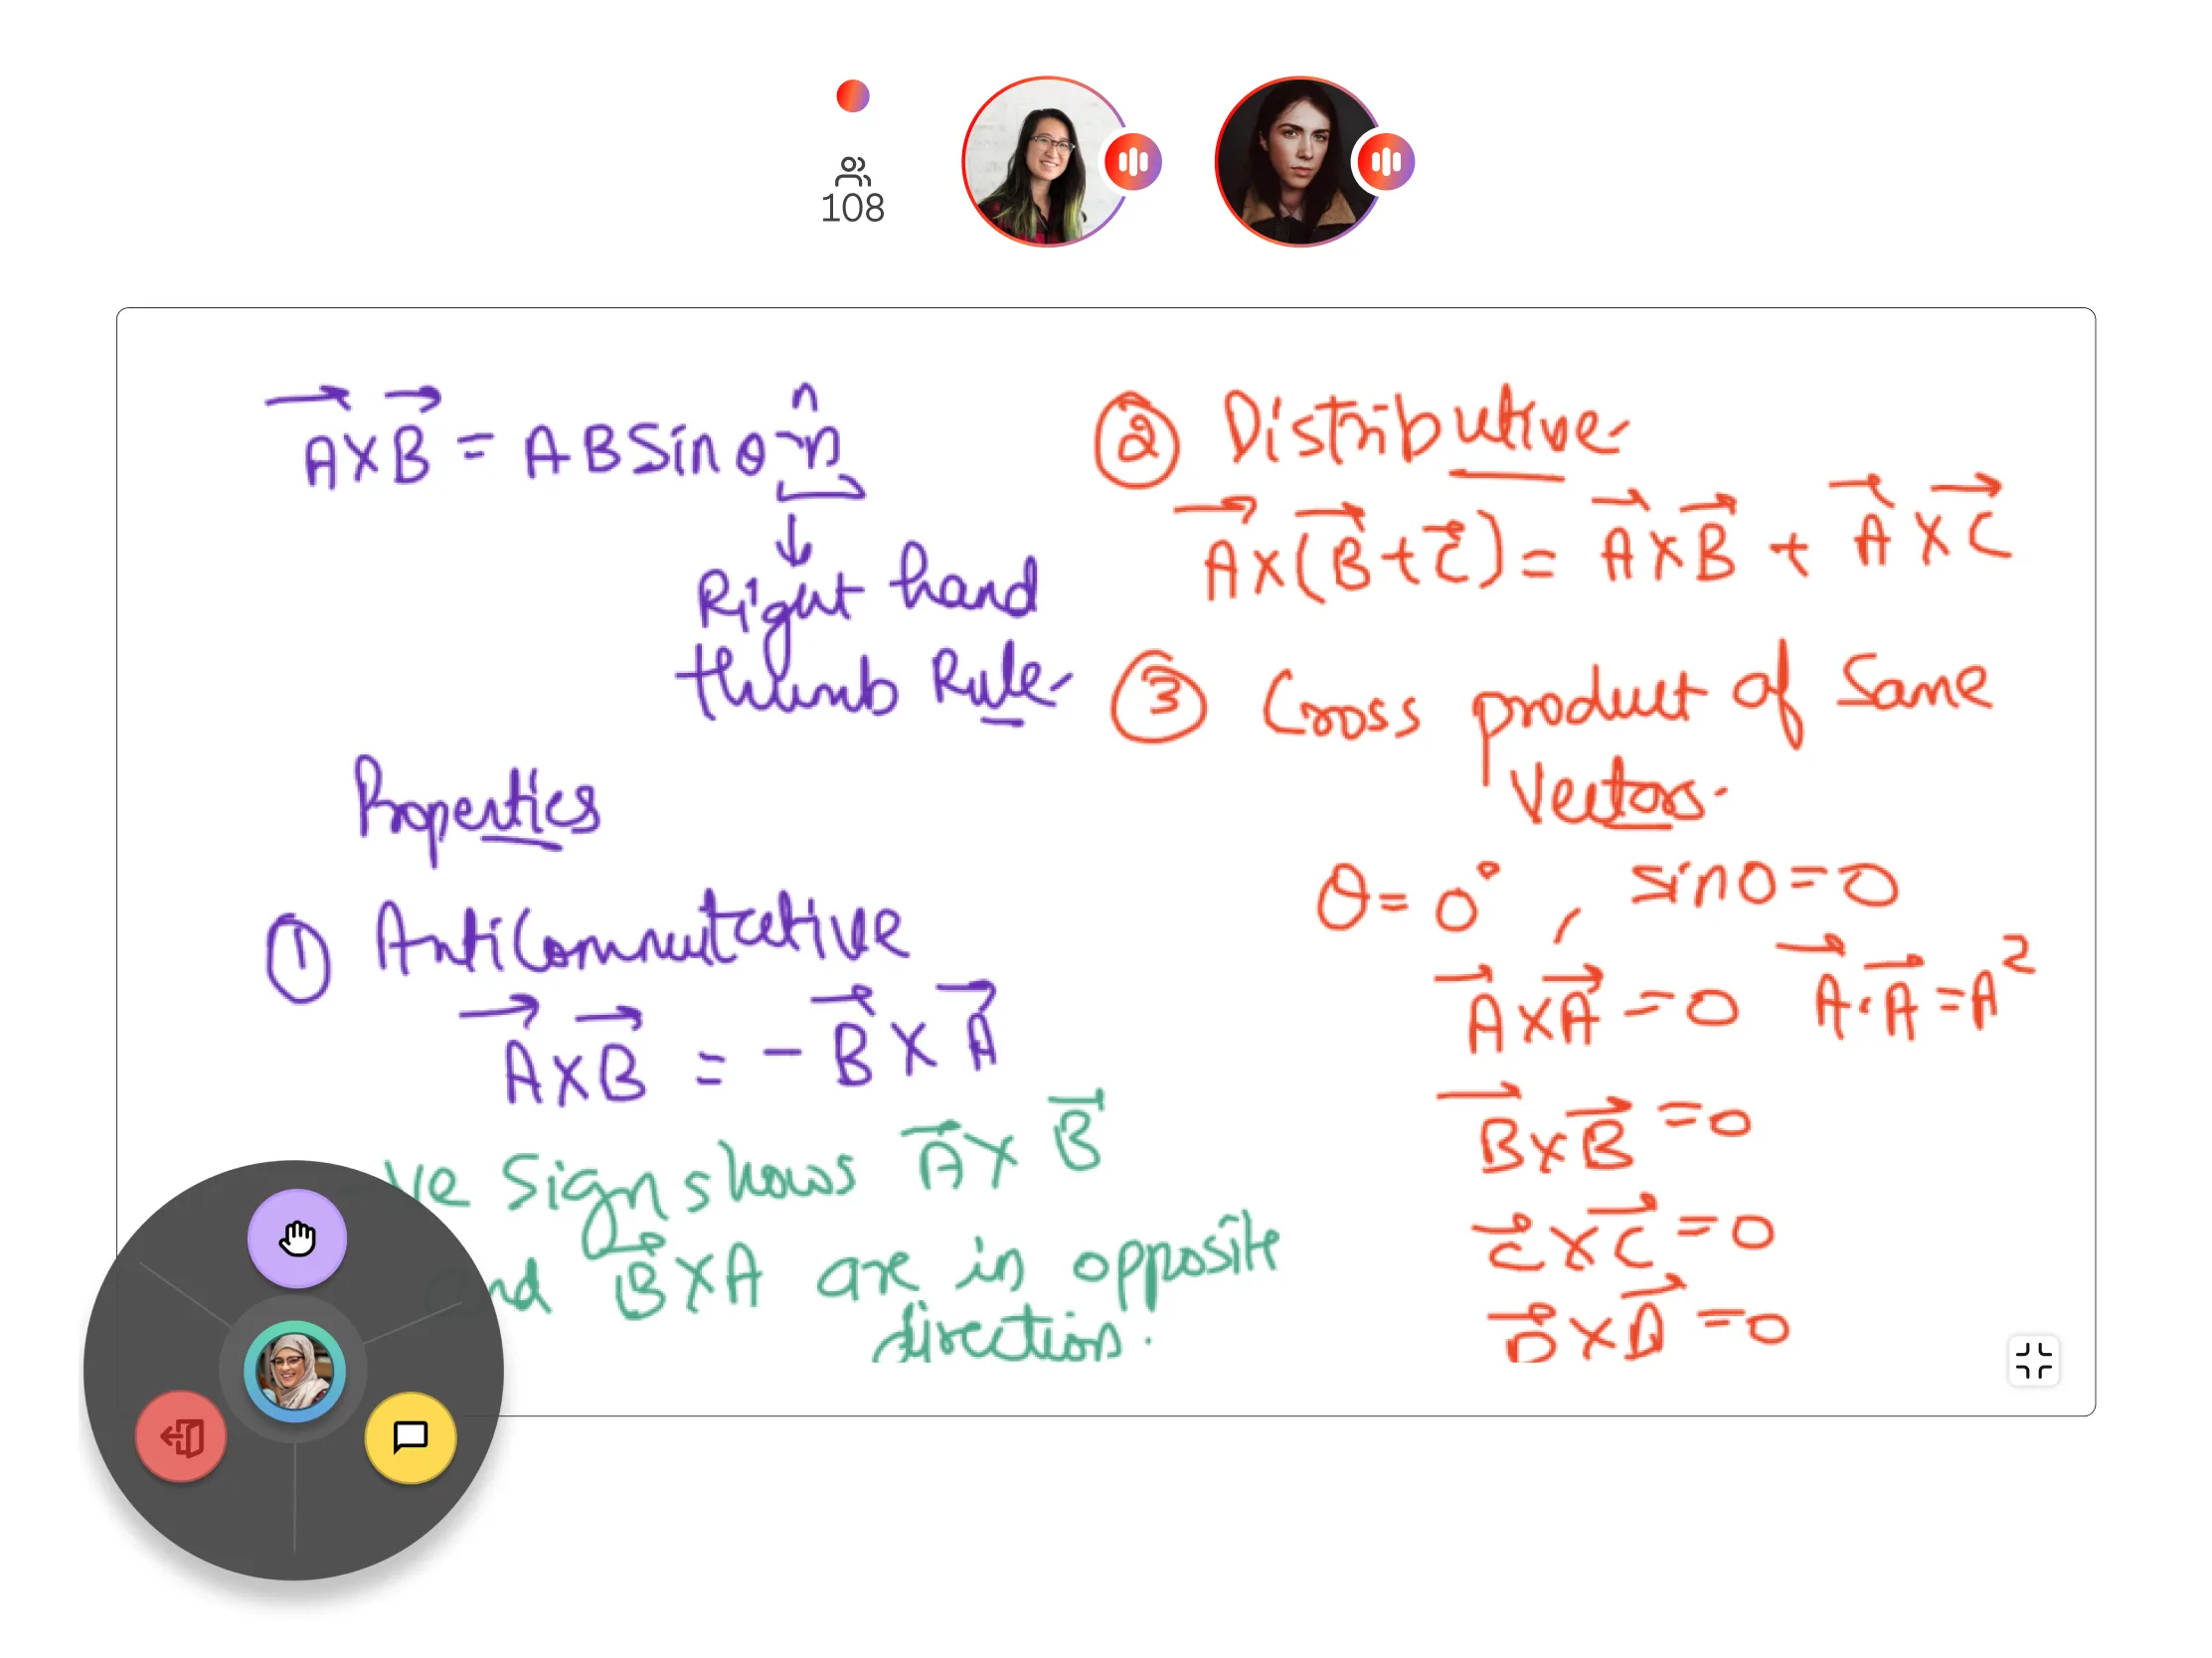 108
A⃗ × B⃗ = AB Sin θ n̂
Right hand
thumb Rule
Properties
① AntiCommutative
A⃗ × B⃗ = - B⃗ × A⃗
-ve Sign shows A⃗ × B⃗
and B⃗ × A are in opposite
direction.
② Distributive
A⃗ × (B⃗ + C⃗) = A⃗ × B⃗ + A⃗ × C⃗
③ Cross product of Same
Vectors.
θ = 0°, sin 0 = 0
A⃗ × A⃗ = 0 A⃗ · A⃗ = A²
B⃗ × B⃗ = 0
C⃗ × C⃗ = 0
D⃗ × D⃗ = 0